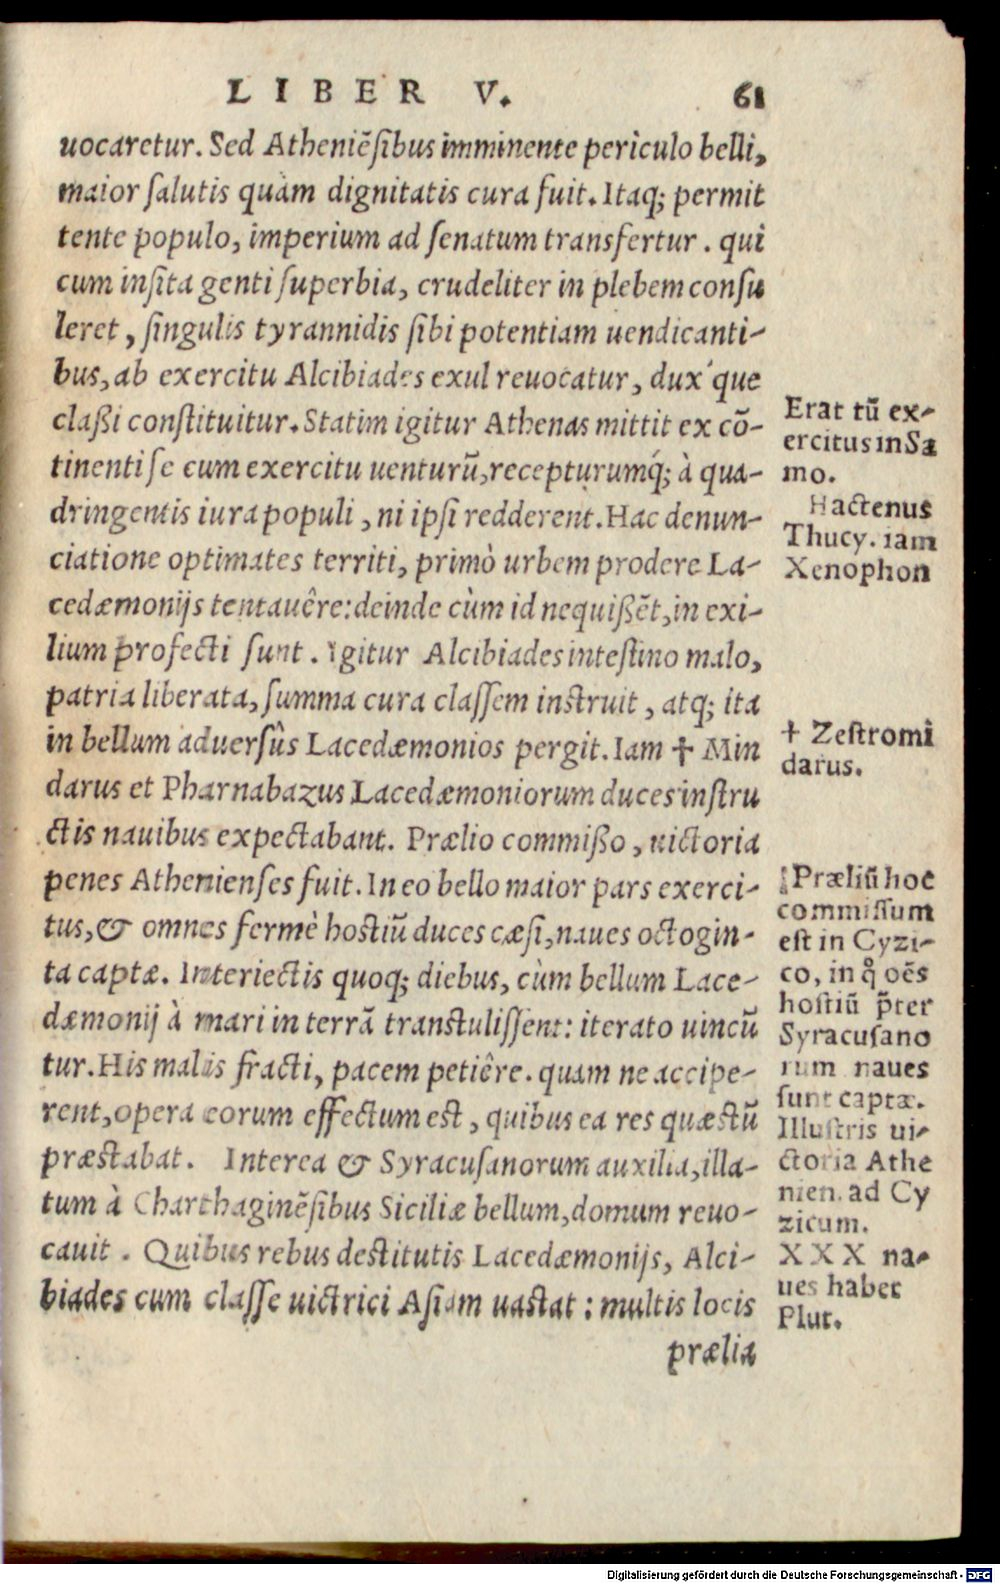 LIBER V. 61
uocaretur. Sed Atheniēſibus imminente periculo belli,
maior ſalutis quàm dignitatis cura fuit. Itaq; permit
tente populo, imperium ad ſenatum transfertur. qui
cum inſita genti ſuperbia, crudeliter in plebem conſu
leret, ſingulis tyrannidis ſibi potentiam uendicanti-
bus, ab exercitu Alcibiades exul reuocatur, dux'que
claßi conſtituitur. Statim igitur Athenas mittit ex cō-
tinenti ſe cum exercitu uenturū, recepturumq́; à qua-
dringentis iura populi, ni ipſi redderent. Hac denun-
ciatione optimates territi, primò urbem prodere La-
cedæmonijs tentauêre: deinde cùm id nequißēt, in exi-
lium profecti sunt. Igitur Alcibiades inteſtino malo,
patria liberata, ſumma cura claſſem inſtruit, atq; ita
in bellum aduerſûs Lacedæmonios pergit. Iam † Min
darus et Pharnabazus Lacedæmoniorum duces inſtru
ctis nauibus expectabant. Prælio commißo, uictoria
penes Athenienſes fuit. In eo bello maior pars exerci-
tus, & omnes fermè hoſtiū duces cæſi, naues octogin-
ta captæ. Interiectis quoq; diebus, cùm bellum Lace-
dæmonij à mari in terrā tranſtuliſſent: iterato uincū
tur. His malis fracti, pacem petiêre. quam ne accipe-
rent, opera eorum effectum eſt, quibus ea res quæſtū
præſtabat. Interea & Syracuſanorum auxilia, illa-
tum à Charthaginēſibus Siciliæ bellum, domum reuo-
cauit. Quibus rebus deſtitutis Lacedæmonijs, Alci-
biades cum claſſe uictrici Aſiam uaſtat: multis locis
prælia
Erat tū ex-
ercitus in Sa
mo.
Hactenus
Thucy. iam
Xenophon
† Zeſtromi
darus.
Præliū hoc
commiſſum
eſt in Cyzi-
co, in q̊ oēs
hoſtiū p̄ter
Syracuſano
rum naues
ſunt captæ.
Illuſtris ui-
ctoria Athe
nien. ad Cy
zicum.
XXX na-
ues habet
Plut.
Digitalisierung gefördert durch die Deutsche Forschungsgemeinschaft - DFG